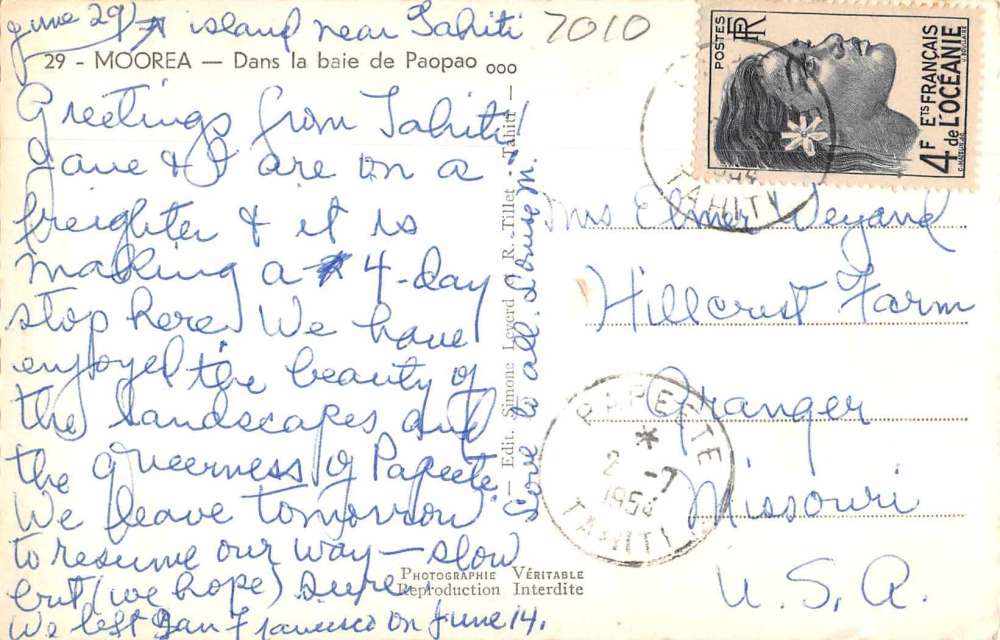 June 29
island near Tahiti
7010
29 - MOOREA — Dans la baie de Paopao
Greetings from Tahiti!
Jane & I are on a
freighter & it is
making a 4-day
stop here. We have
enjoyed the beauty of
the landscapes and
the queerness of Papeete.
We leave tomorrow
to resume our way — slow
but (we hope) sure.
We left San Francisco on June 14.
Love to all. Louise M.
— Edit. Simone Leverd Cl. R. Tillet Tahiti —
PHOTOGRAPHIE VÉRITABLE
Reproduction Interdite
POSTES
RF
ETS FRANÇAIS
de L'OCÉANIE
4F
TAHITI
Mrs Elmer Weyand
Hillcrest Farm
Granger
Missouri
U. S. A.
PAPEETE
*
2 -7
TAHITI